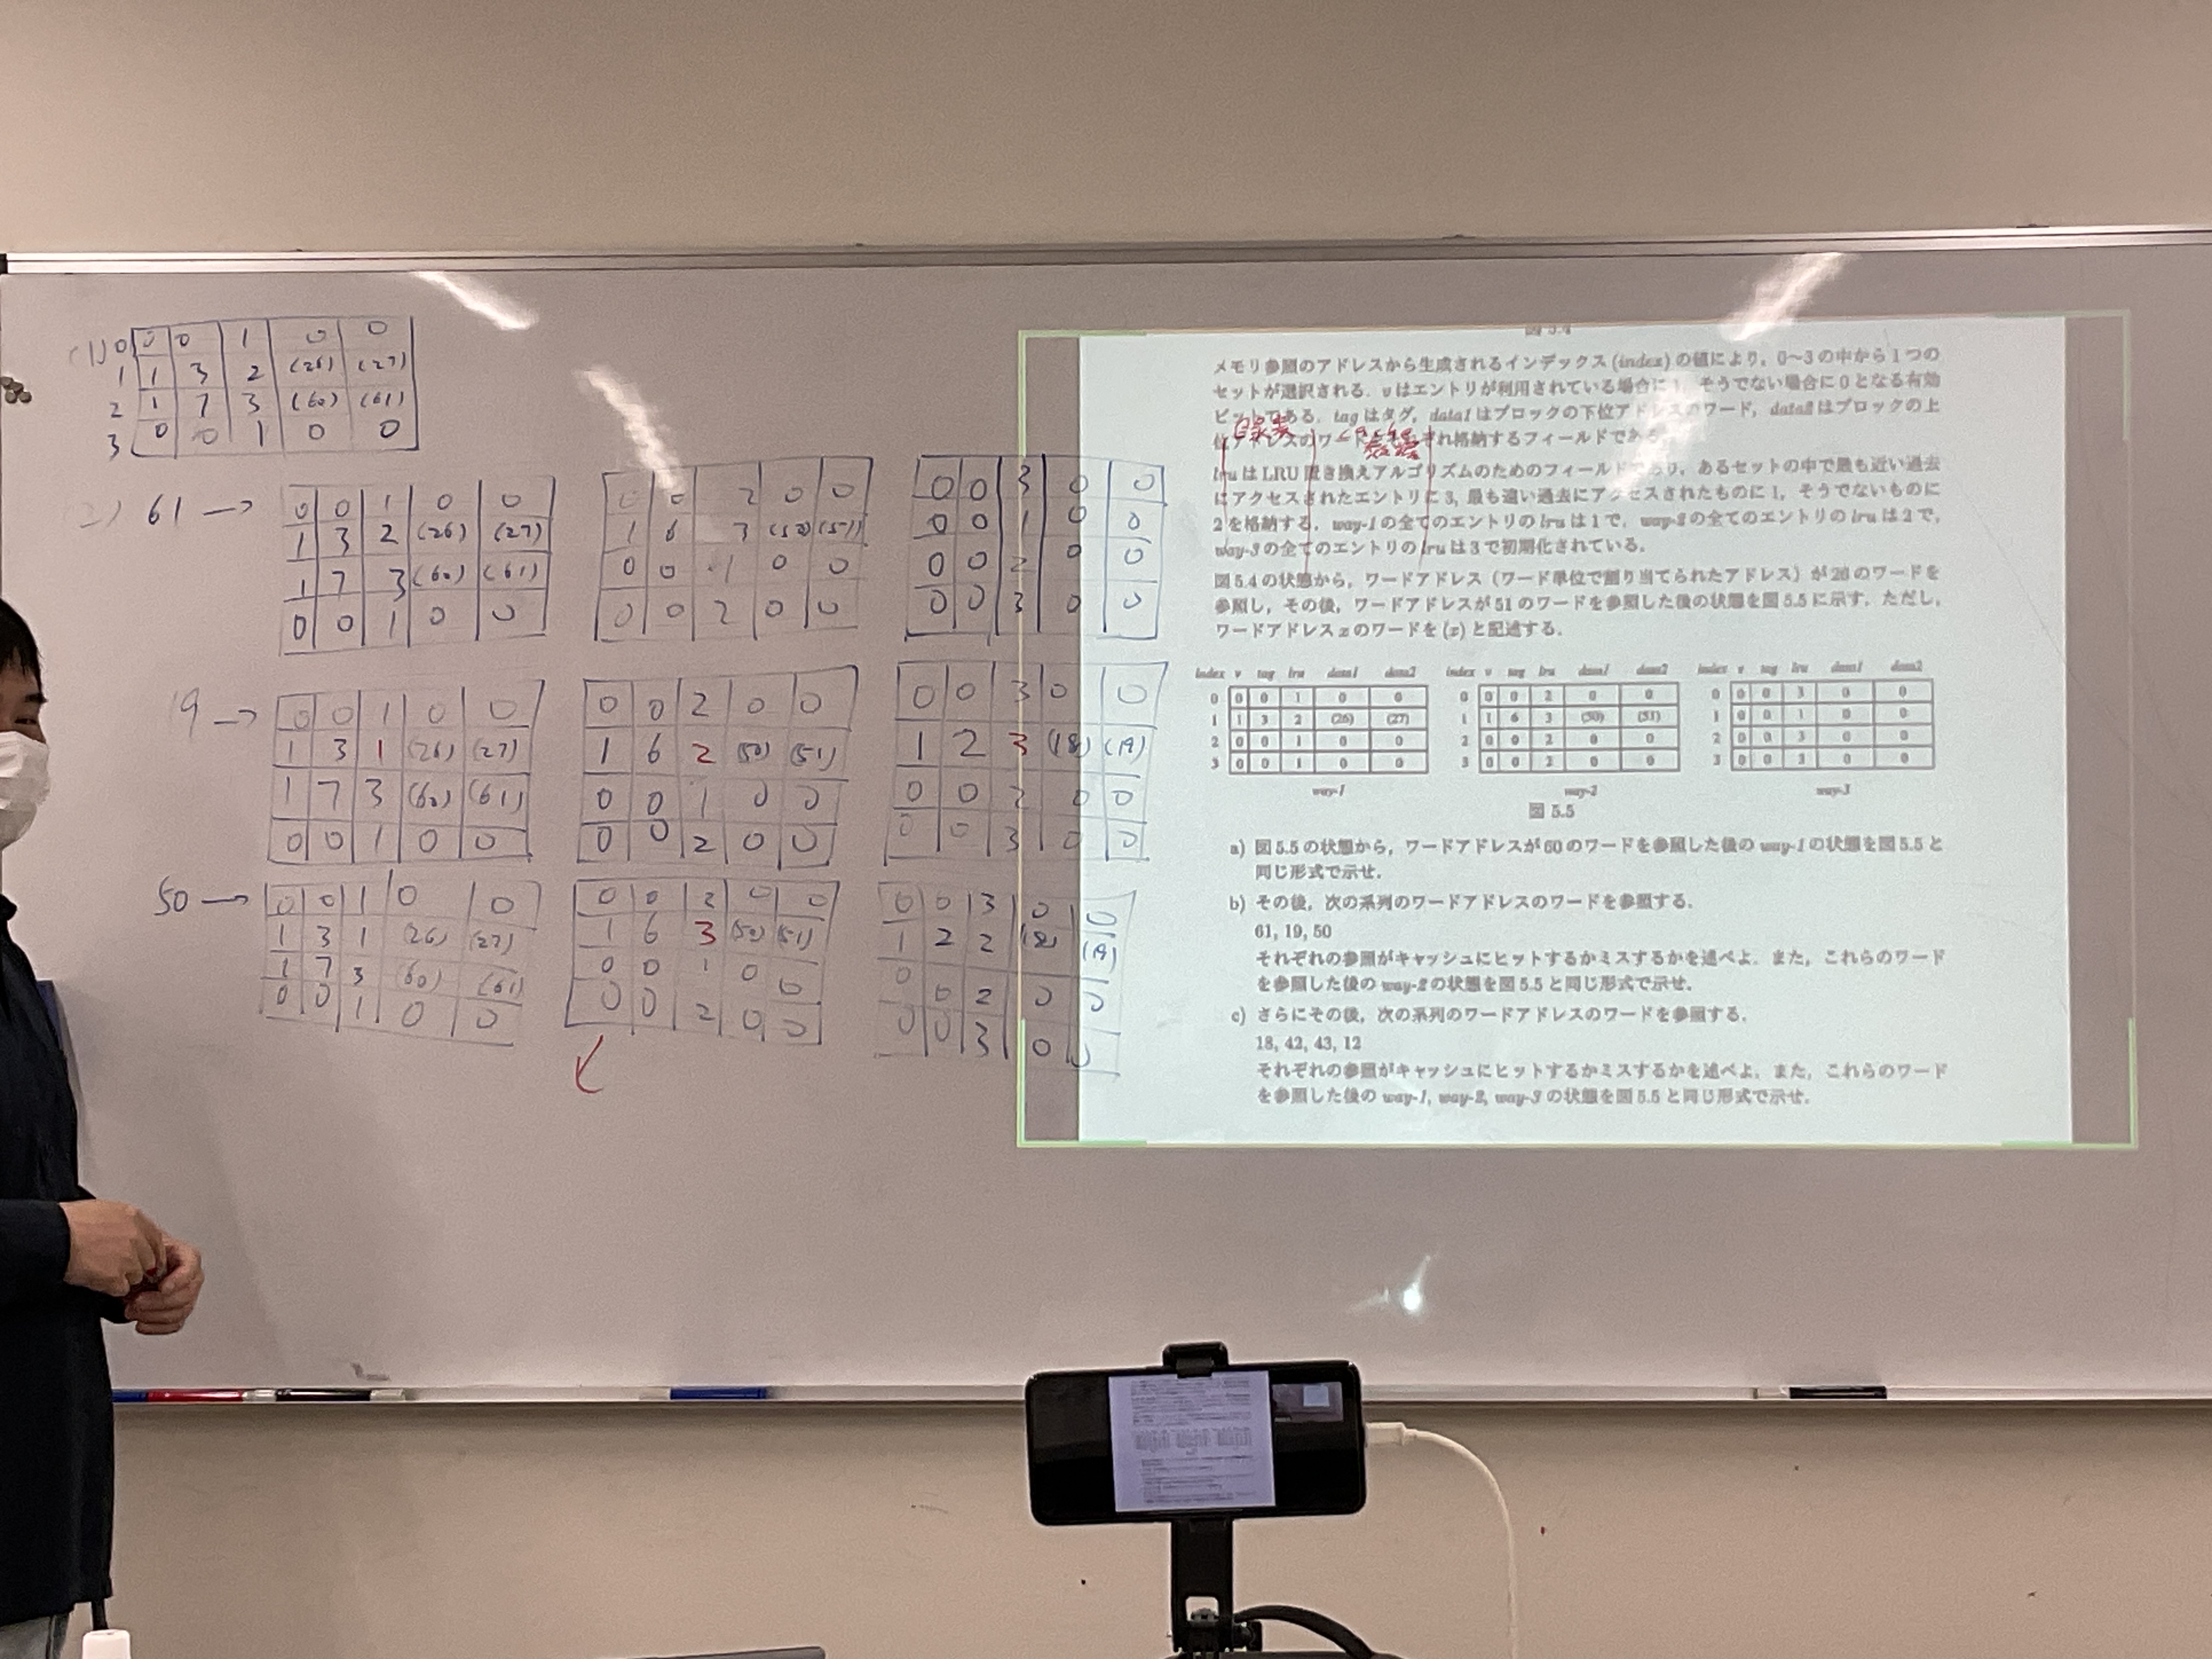 (1) 0 0 0 1 0 0
1 1 3 2 (26) (27)
2 1 7 3 (60) (61)
3 0 0 1 0 0
(2) 61 →
0 0 1 0 0
1 3 2 (26) (27)
1 7 3 (60) (61)
0 0 1 0 0
0 0 2 0 0
1 6 3 (50) (51)
0 0 1 0 0
0 0 2 0 0
0 0 3 0 0
0 0 1 0 0
0 0 2 0 0
0 0 3 0 0
19 →
0 0 1 0 0
1 3 1 (26) (27)
1 7 3 (60) (61)
0 0 1 0 0
0 0 2 0 0
1 6 2 (50) (51)
0 0 1 0 0
0 0 2 0 0
0 0 3 0 0
1 2 3 (18) (19)
0 0 2 0 0
0 0 3 0 0
50 →
0 0 1 0 0
1 3 1 (26) (27)
1 7 3 (60) (61)
0 0 1 0 0
0 0 2 0 0
1 6 3 (50) (51)
0 0 1 0 0
0 0 2 0 0
0 0 3 0 0
1 2 2 (18) (19)
0 0 2 0 0
0 0 3 0 0
図 5.4
メモリ参照のアドレスから生成されるインデックス (index) の値により，0～3 の中から 1 つの
セットが選択される．v はエントリが利用されている場合に 1，そうでない場合に 0 となる有効
ビットである．tag はタグ，data1 はブロックの下位アドレスのワード，data2 はブロックの上
位アドレスのワードをそれぞれ格納するフィールドである．
lru は LRU 置き換えアルゴリズムのためのフィールドであり，あるセットの中で最も近い過去
にアクセスされたエントリに 3，最も遠い過去にアクセスされたものに 1，そうでないものに
2 を格納する．way-1 の全てのエントリの lru は 1 で，way-2 の全てのエントリの lru は 2 で，
way-3 の全てのエントリの lru は 3 で初期化されている．
図 5.4 の状態から，ワードアドレス（ワード単位で割り当てられたアドレス）が 26 のワードを
参照し，その後，ワードアドレスが 51 のワードを参照した後の状態を図 5.5 に示す．ただし，
ワードアドレス x のワードを (x) と記述する．
index v tag lru data1 data2
0 0 0 1 0 0
1 1 3 2 (26) (27)
2 0 0 1 0 0
3 0 0 1 0 0
way-1
index v tag lru data1 data2
0 0 0 2 0 0
1 1 6 3 (50) (51)
2 0 0 2 0 0
3 0 0 2 0 0
way-2
index v tag lru data1 data2
0 0 0 3 0 0
1 0 0 1 0 0
2 0 0 3 0 0
3 0 0 3 0 0
way-3
図 5.5
a) 図 5.5 の状態から，ワードアドレスが 60 のワードを参照した後の way-1 の状態を図 5.5 と
同じ形式で示せ．
b) その後，次の系列のワードアドレスのワードを参照する．
61, 19, 50
それぞれの参照がキャッシュにヒットするかミスするかを述べよ．また，これらのワード
を参照した後の way-2 の状態を図 5.5 と同じ形式で示せ．
c) さらにその後，次の系列のワードアドレスのワードを参照する．
18, 42, 43, 12
それぞれの参照がキャッシュにヒットするかミスするかを述べよ．また，これらのワード
を参照した後の way-1, way-2, way-3 の状態を図 5.5 と同じ形式で示せ．